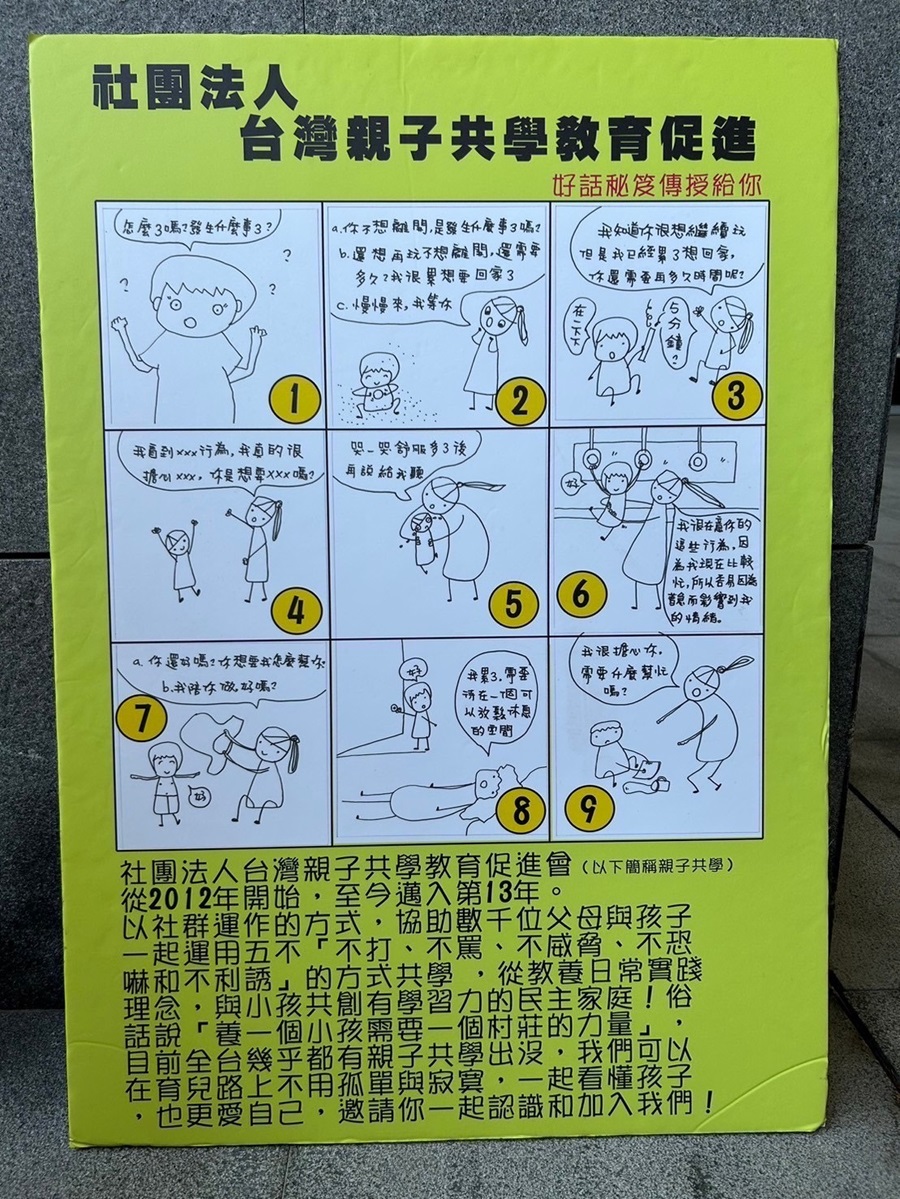 社團法人
台灣親子共學教育促進
好話秘笈傳授給你
怎麼3嗎?發生什麼事3?
?
?
?
1
a.你不想離開,是發生什麼事3嗎?
b.還想再玩不想離開,還需要
多久?我很累想要回家3
c.慢慢來,我等你
2
我知道你很想繼續玩
但是我已經累3想回家,
你還需要再多久時間呢?
在一下下
5分鐘?
3
我看到xxx行為,我真的很
擔心xxx,你是想要xxx嗎?
4
哭一哭舒服多3後
再說給我聽
5
好
我很在意你的
這些行為,因
為我現在比較
忙,所以容易因為
而影響到我
的情緒。
6
a.你還好嗎?你想要我怎麼幫你
b.我陪你做,好嗎?
好
7
好
我累3,需要
一個可
以放鬆休息
的空間
8
我很擔心你,
需要什麼幫忙
嗎?
9
社團法人台灣親子共學教育促進會(以下簡稱親子共學)
從2012年開始,至今邁入第13年。
以社群運作的方式,協助數千位父母與孩子
一起運用五不「不打、不罵、不威脅、不恐
嚇和不利誘」的方式共學,從教養日常實踐
理念,與小孩共創有學習力的民主家庭!俗
話說「養一個小孩需要一個村莊的力量」,
目前全台幾乎都有親子共學出沒,我們可以
在育兒路上不用孤單與寂寞,一起看懂孩子
,也更愛自己,邀請你一起認識和加入我們!